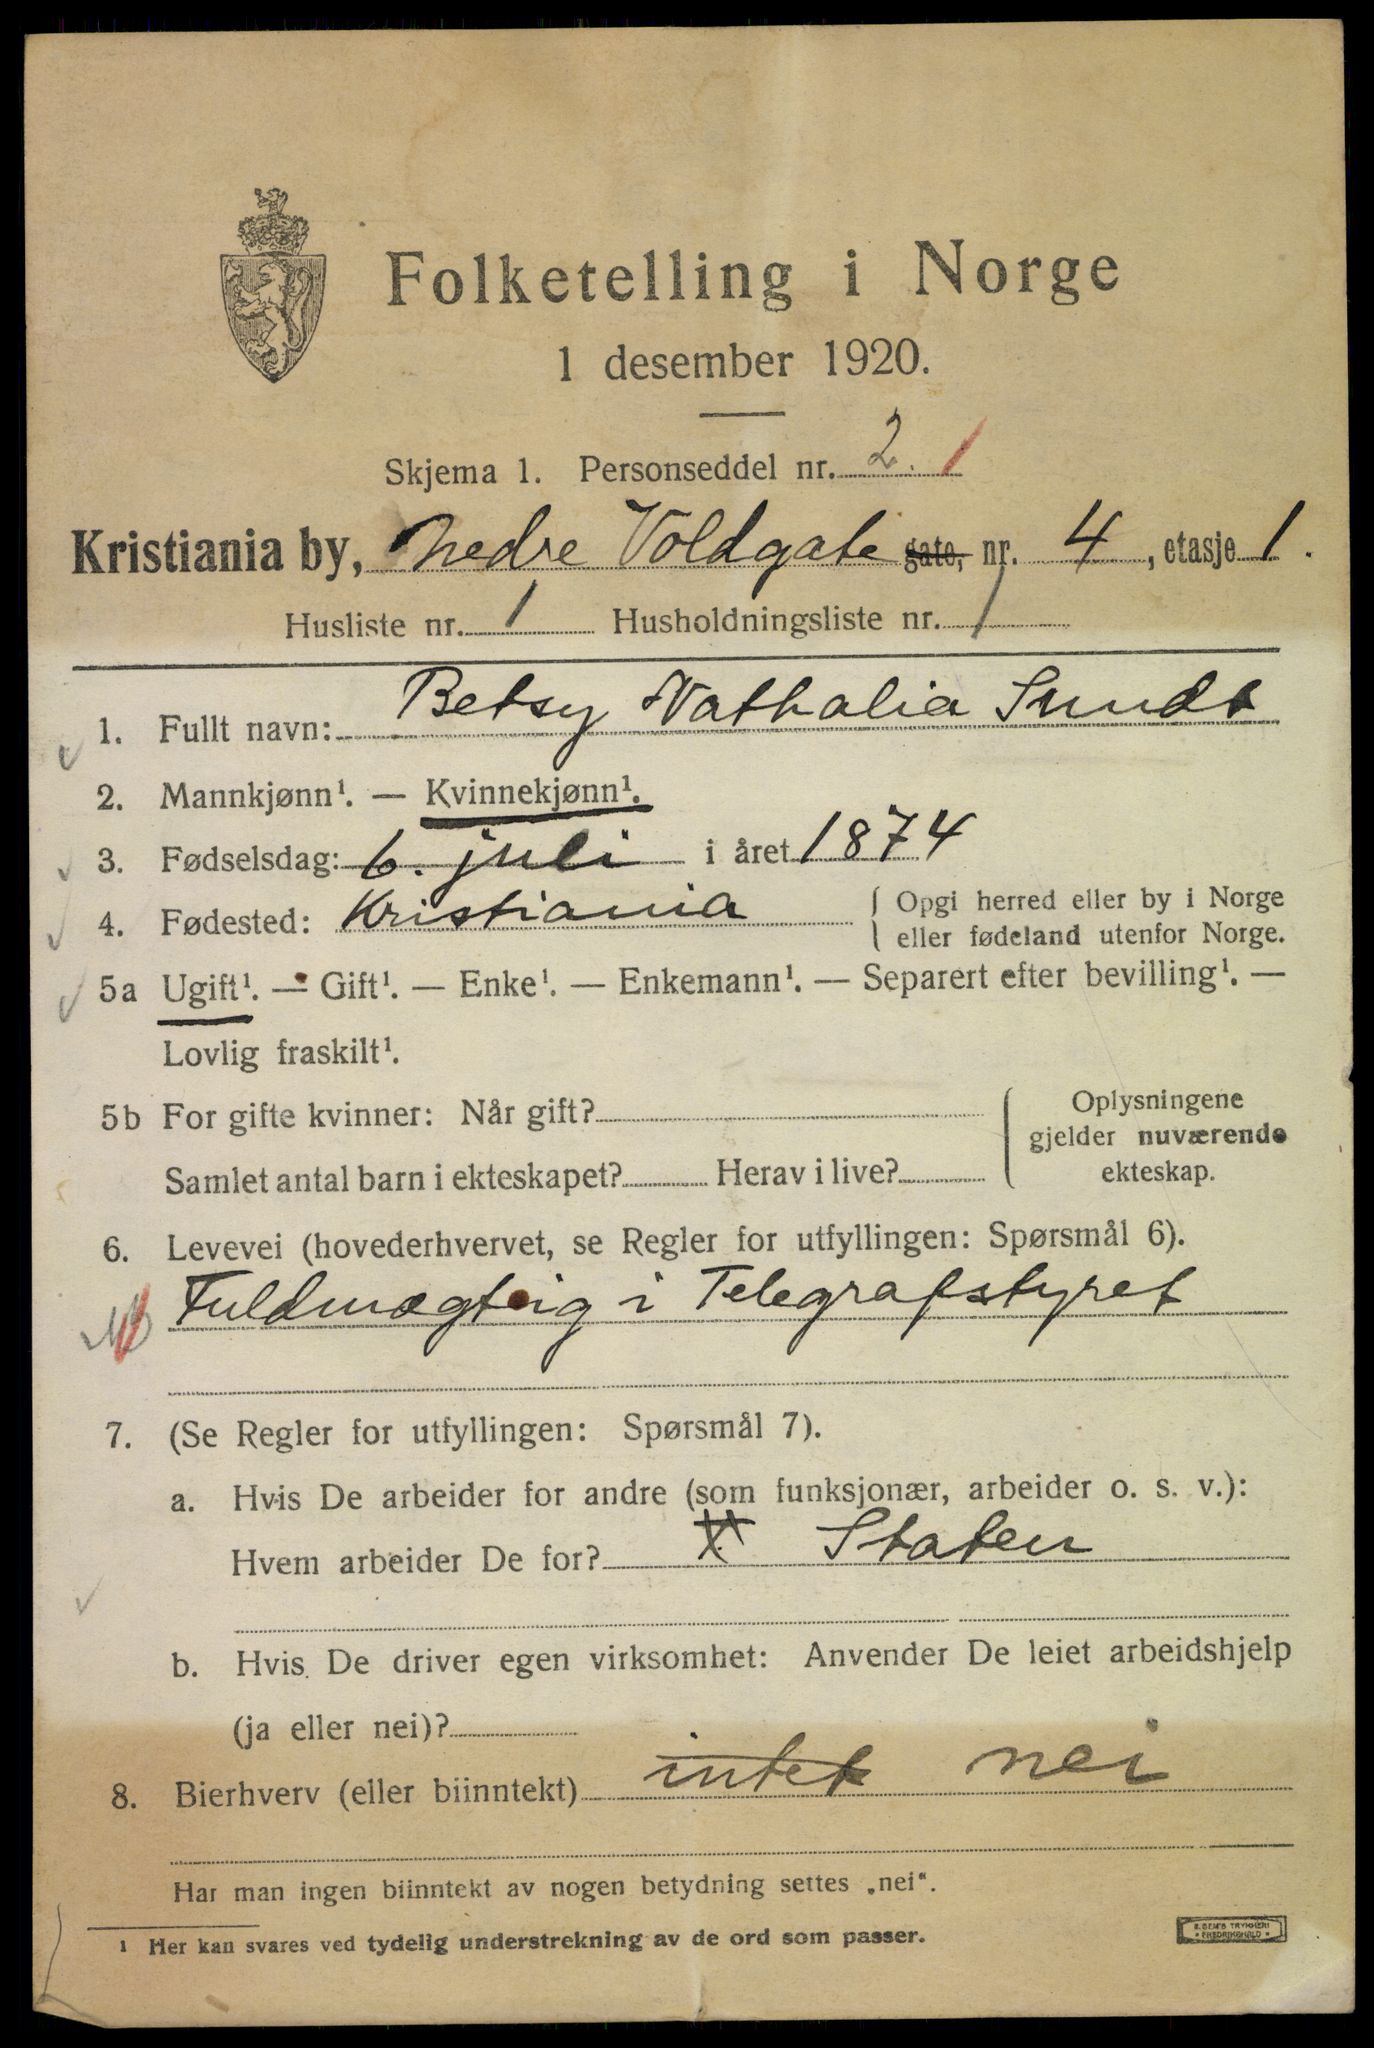 Folketelling i Norge
1 desember 1920.
Skjema 1. Personseddel nr. 2. 1
Kristiania by, Nedre Voldgate gate, nr. 4, etasje 1.
Husliste nr. 1 Husholdningsliste nr. 1
1. Fullt navn: Betsy Nathalia Sundt
2. Mannkjønn¹. — Kvinnekjønn¹.
3. Fødselsdag: 6. juli i året 1874
4. Fødested: Kristiania { Opgi herred eller by i Norge
eller fødeland utenfor Norge.
5a Ugift¹. — Gift¹. — Enke¹. — Enkemann¹. — Separert efter bevilling¹. —
Lovlig fraskilt¹.
5b For gifte kvinner: Når gift?
Samlet antal barn i ekteskapet? Herav i live?
Oplysningene
gjelder nuværende
ekteskap.
6. Levevei (hovederhvervet, se Regler for utfyllingen: Spørsmål 6).
Fuldmægtig i Telegrafstyret
7. (Se Regler for utfyllingen: Spørsmål 7).
a. Hvis De arbeider for andre (som funksjonær, arbeider o. s. v.):
Hvem arbeider De for? Staten
b. Hvis De driver egen virksomhet: Anvender De leiet arbeidshjelp
(ja eller nei)?
8. Bierhverv (eller biinntekt) intet nei
Har man ingen biinntekt av nogen betydning settes „nei“.
¹ Her kan svares ved tydelig understrekning av de ord som passer.
E. SEM'S TRYKKERI
* FREDRIKSHALD *